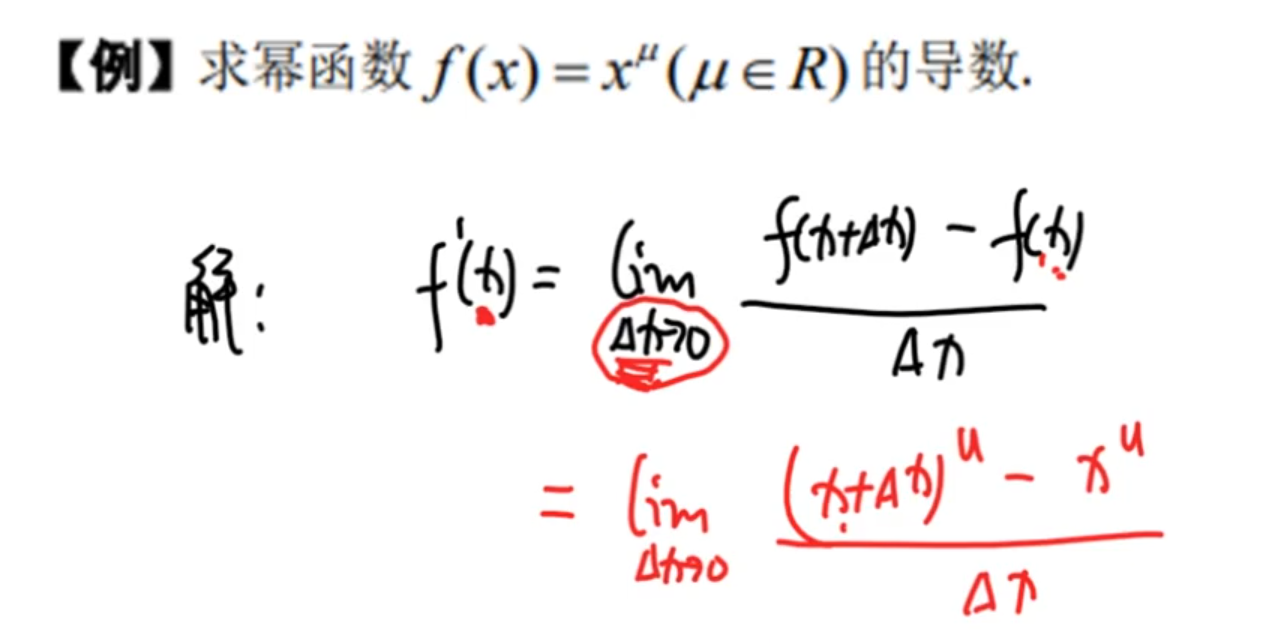 【例】求幂函数 f(x) = x^μ (μ ∈ R) 的导数.
解: f'(x) = lim_{Δx→0} \frac{f(x+Δx) - f(x)}{Δx}
= lim_{Δx→0} \frac{(x+Δx)^u - x^u}{Δx}